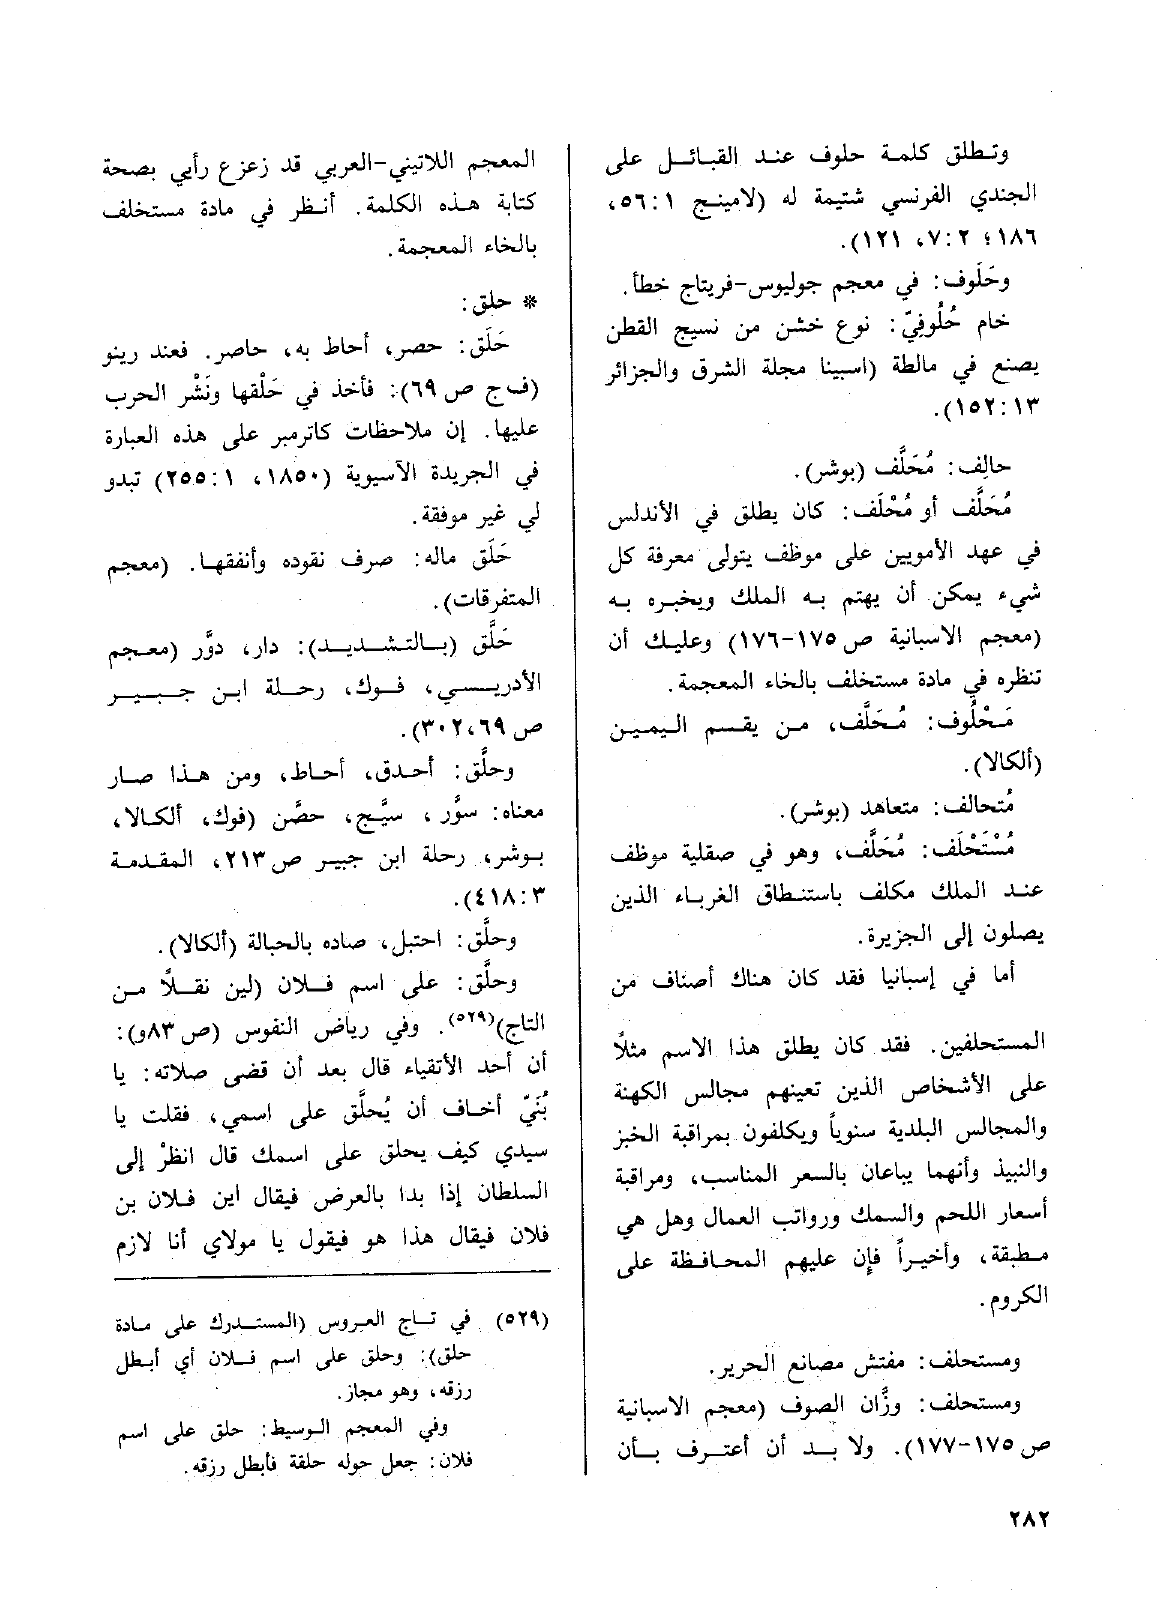 وتطلق كلمة حلوف عند القبائل على
الجندي الفرنسي شتيمة له (لامينج ١ : ٥٦،
١٨٦؛ ٢ : ٧، ١٢١).
وحَلَوف: في معجم جوليوس-فريتاج خطأ.
خام حُلُوفِيّ: نوع خشن من نسيج القطن
يصنع في مالطة (اسبينا مجلة الشرق والجزائر
١٣ : ١٥٢).
حالِف: مُحَلَّف (بوشر).
مُحَلَّف أو مُحْلَف: كان يطلق في الأندلس
في عهد الأمويين على موظف يتولى معرفة كل
شيء يمكن أن يهتم به الملك ويخبره به
(معجم الاسبانية ص ١٧٥-١٧٦) وعليك أن
تنظره في مادة مستخلف بالخاء المعجمة.
مَحْلُوف: مُحَلَّف، من يقسم اليمين
(ألكالا).
مُتحالف: متعاهد (بوشر).
مُسْتَحْلَف: مُحَلَّف، وهو في صقلية موظف
عند الملك مكلف باستنطاق الغرباء الذين
يصلون إلى الجزيرة.
أما في إسبانيا فقد كان هناك أصناف من
المستحلفين. فقد كان يطلق هذا الاسم مثلًا
على الأشخاص الذين تعينهم مجالس الكهنة
والمجالس البلدية سنوياً ويكلفون بمراقبة الخبز
والنبيذ وأنهما يباعان بالسعر المناسب، ومراقبة
أسعار اللحم والسمك ورواتب العمال وهل هي
مطبقة، وأخيراً فإن عليهم المحافظة على
الكروم.
ومستحلف: مفتش مصانع الحرير.
ومستحلف: وزَّان الصوف (معجم الاسبانية
ص ١٧٥-١٧٧). ولا بد أن أعترف بأن
المعجم اللاتيني-العربي قد زعزع رأيي بصحة
كتابة هذه الكلمة. أنظر في مادة مستخلف
بالخاء المعجمة.
* حلق:
حَلَق: حصر، أحاط به، حاصر. فعند رينو
(ف ج ص ٦٩): فأخذ في حَلْقها ونَشْر الحرب
عليها. إن ملاحظات كاترمير على هذه العبارة
في الجريدة الآسيوية (١٨٥٠، ١ : ٢٥٥) تبدو
لي غير موفقة.
حَلَق ماله: صرف نقوده وأنفقها. (معجم
المتفرقات).
حَلَّق (بالتشديد): دار، دوَّر (معجم
الأدريسي، فوك، رحلة ابن جبير
ص ٦٩، ٣٠٢).
وحلَّق: أحدق، أحاط، ومن هذا صار
معناه: سوَّر، سيَّج، حصَّن (فوك، ألكالا،
بوشر، رحلة ابن جبير ص ٢١٣، المقدمة
٣ : ٤١٨).
وحلَّق: احتبل، صاده بالحبالة (ألكالا).
وحلَّق: على اسم فلان (لين نقلًا من
التاج)(٥٢٩). وفي رياض النفوس (ص ٨٣و):
أن أحد الأتقياء قال بعد أن قضى صلاته: يا
بُنَيّ أخاف أن يُحلَّق على اسمي، فقلت يا
سيدي كيف يحلق على اسمك قال انظرْ إلى
السلطان إذا بدا بالعرض فيقال اين فلان بن
فلان فيقال هذا هو فيقول يا مولاي أنا لازم
(٥٢٩) في تاج العروس (المستدرك على مادة
حلق): وحلق على اسم فلان أي أبطل
رزقه، وهو مجاز.
وفي المعجم الوسيط: حلق على اسم
فلان: جعل حوله حلقة فأبطل رزقه.
٢٨٢